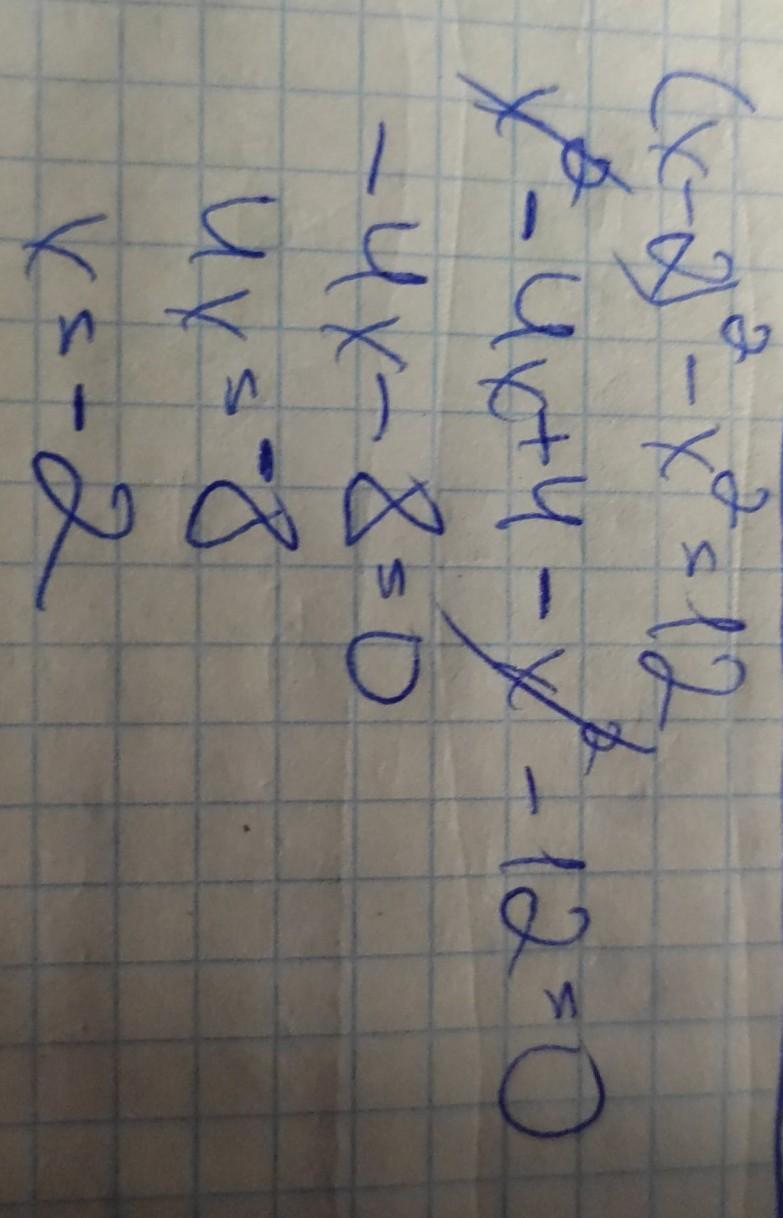 (x-2)² - x² = 12
x² - 4x + 4 - x² - 12 = 0
- 4x - 8 = 0
4x = -8
x = -2